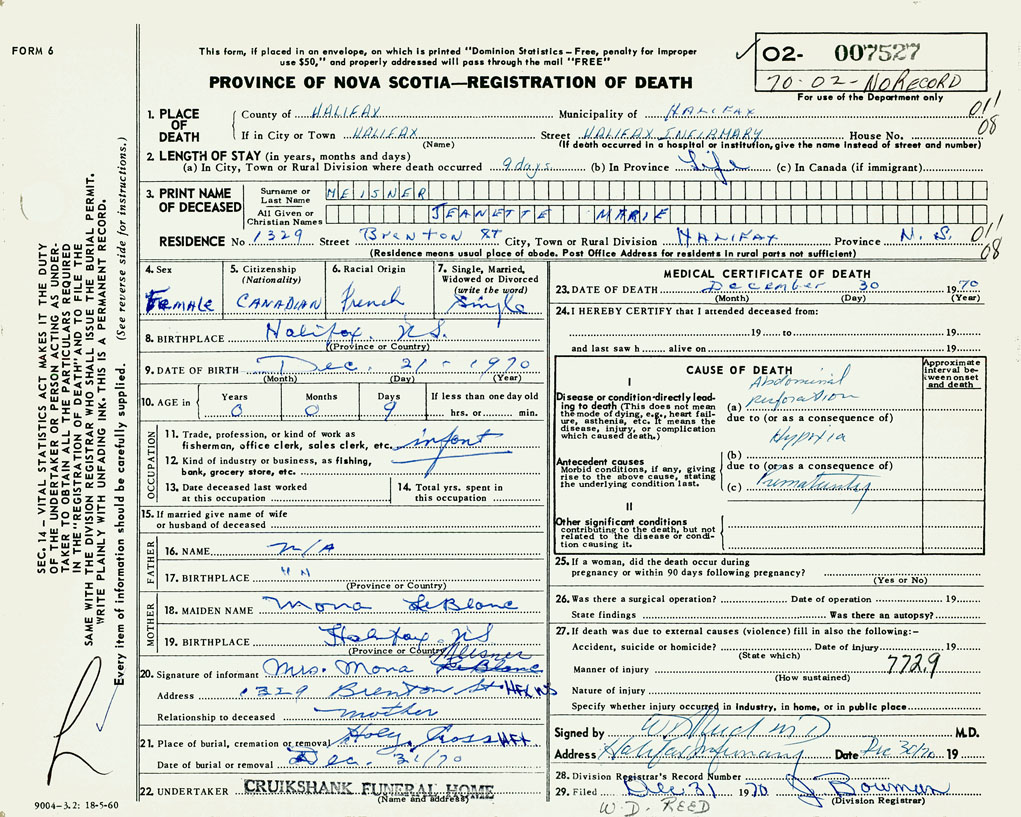 FORM 6
This form, if placed in an envelope, on which is printed "Dominion Statistics – Free, penalty for improper
use $50," and properly addressed will pass through the mail "FREE"
PROVINCE OF NOVA SCOTIA—REGISTRATION OF DEATH
✓ 02- 007527
70-02-NO RECORD
For use of the Department only
1. PLACE OF DEATH
County of HALIFAX Municipality of HALIFAX 011
If in City or Town HALIFAX Street HALIFAX INFIRMARY House No. 08
(Name) (If death occurred in a hospital or institution, give the name instead of street and number)
2. LENGTH OF STAY (in years, months and days)
(a) In City, Town or Rural Division where death occurred 9 days (b) In Province Life (c) In Canada (if immigrant)
3. PRINT NAME OF DECEASED
Surname or Last Name MEISNER
All Given or Christian Names JEANETTE MARIE
RESIDENCE No 1329 Street Brenton ST City, Town or Rural Division HALIFAX Province N.S. 011
08
(Residence means usual place of abode. Post Office Address for residents in rural parts not sufficient)
4. Sex Female
5. Citizenship (Nationality) CANADIAN
6. Racial Origin French
7. Single, Married, Widowed or Divorced (write the word) Single
8. BIRTHPLACE Halifax, N.S.
(Province or Country)
9. DATE OF BIRTH Dec. 21 - 1970
(Month) (Day) (Year)
10. AGE in Years Months Days If less than one day old
0 0 9 hrs. or min.
OCCUPATION
11. Trade, profession, or kind of work as
fisherman, office clerk, salesh clerk, etc. infant
12. Kind of industry or business, as fishing,
bank, grocery store, etc.
13. Date deceased last worked
at this occupation
14. Total yrs. spent in
this occupation
15. If married give name of wife
or husband of deceased
FATHER
16. NAME N/A
17. BIRTHPLACE " "
(Province or Country)
MOTHER
18. MAIDEN NAME Mona LeBlanc
19. BIRTHPLACE Halifax, NS
(Province or Country) Meisner
20. Signature of informant Mrs. Mona LeBlanc
Address 1329 Brenton St HFX NS
Relationship to deceased mother
21. Place of burial, cremation or removal Holy Cross HFX
Date of burial or removal Dec. 31/70
22. UNDERTAKER CRUIKSHANK FUNERAL HOME
(Name and address)
MEDICAL CERTIFICATE OF DEATH
23. DATE OF DEATH December 30 1970
(Month) (Day) (Year)
24. I HEREBY CERTIFY that I attended deceased from:
19 to 19
and last saw h alive on 19
CAUSE OF DEATH
Approximate interval between onset and death
I
Disease or condition directly lead-
ing to death (This does not mean
the mode of dying, e.g., heart fail-
ure, asthenia, etc. It means the
disease, injury, or complication
which caused death.)
Abdominal
(a) perforation
due to (or as a consequence of)
Hypoxia
Antecedent causes
Morbid conditions, if any, giving
rise to the above cause, stating
the underlying condition last.
(b)
due to (or as a consequence of)
(c) Prematurity
II
Other significant conditions
contributing to the death, but not
related to the disease or condi-
tion causing it.
25. If a woman, did the death occur during
pregnancy or within 90 days following pregnancy?
(Yes or No)
26. Was there a surgical operation? Date of operation 19
State findings Was there an autopsy?
27. If death was due to external causes (violence) fill in also the following:–
Accident, suicide or homicide? Date of injury 19
(State which)
Manner of injury 772.9
(How sustained)
Nature of injury
Specify whether injury occurred in industry, in home, or in public place
Signed by M.D.
Address Halifax Infirmary Date Dec 30/70 19
28. Division Registrar's Record Number
29. Filed Dec 31 1970 J Bowman
(Division Registrar)
W.D. REED
SEC. 14 – VITAL STATISTICS ACT MAKES IT THE DUTY
OF THE UNDERTAKER OR PERSON ACTING AS UNDER-
TAKER TO OBTAIN ALL THE PARTICULARS REQUIRED
IN THE "REGISTRATION OF DEATH" AND TO FILE THE
SAME WITH THE DIVISION REGISTRAR WHO SHALL ISSUE THE BURIAL PERMIT.
WRITE PLAINLY WITH UNFADING INK. THIS IS A PERMANENT RECORD.
Every item of information should be carefully supplied. (See reverse side for instructions.)
9004-3.2: 18-5-60